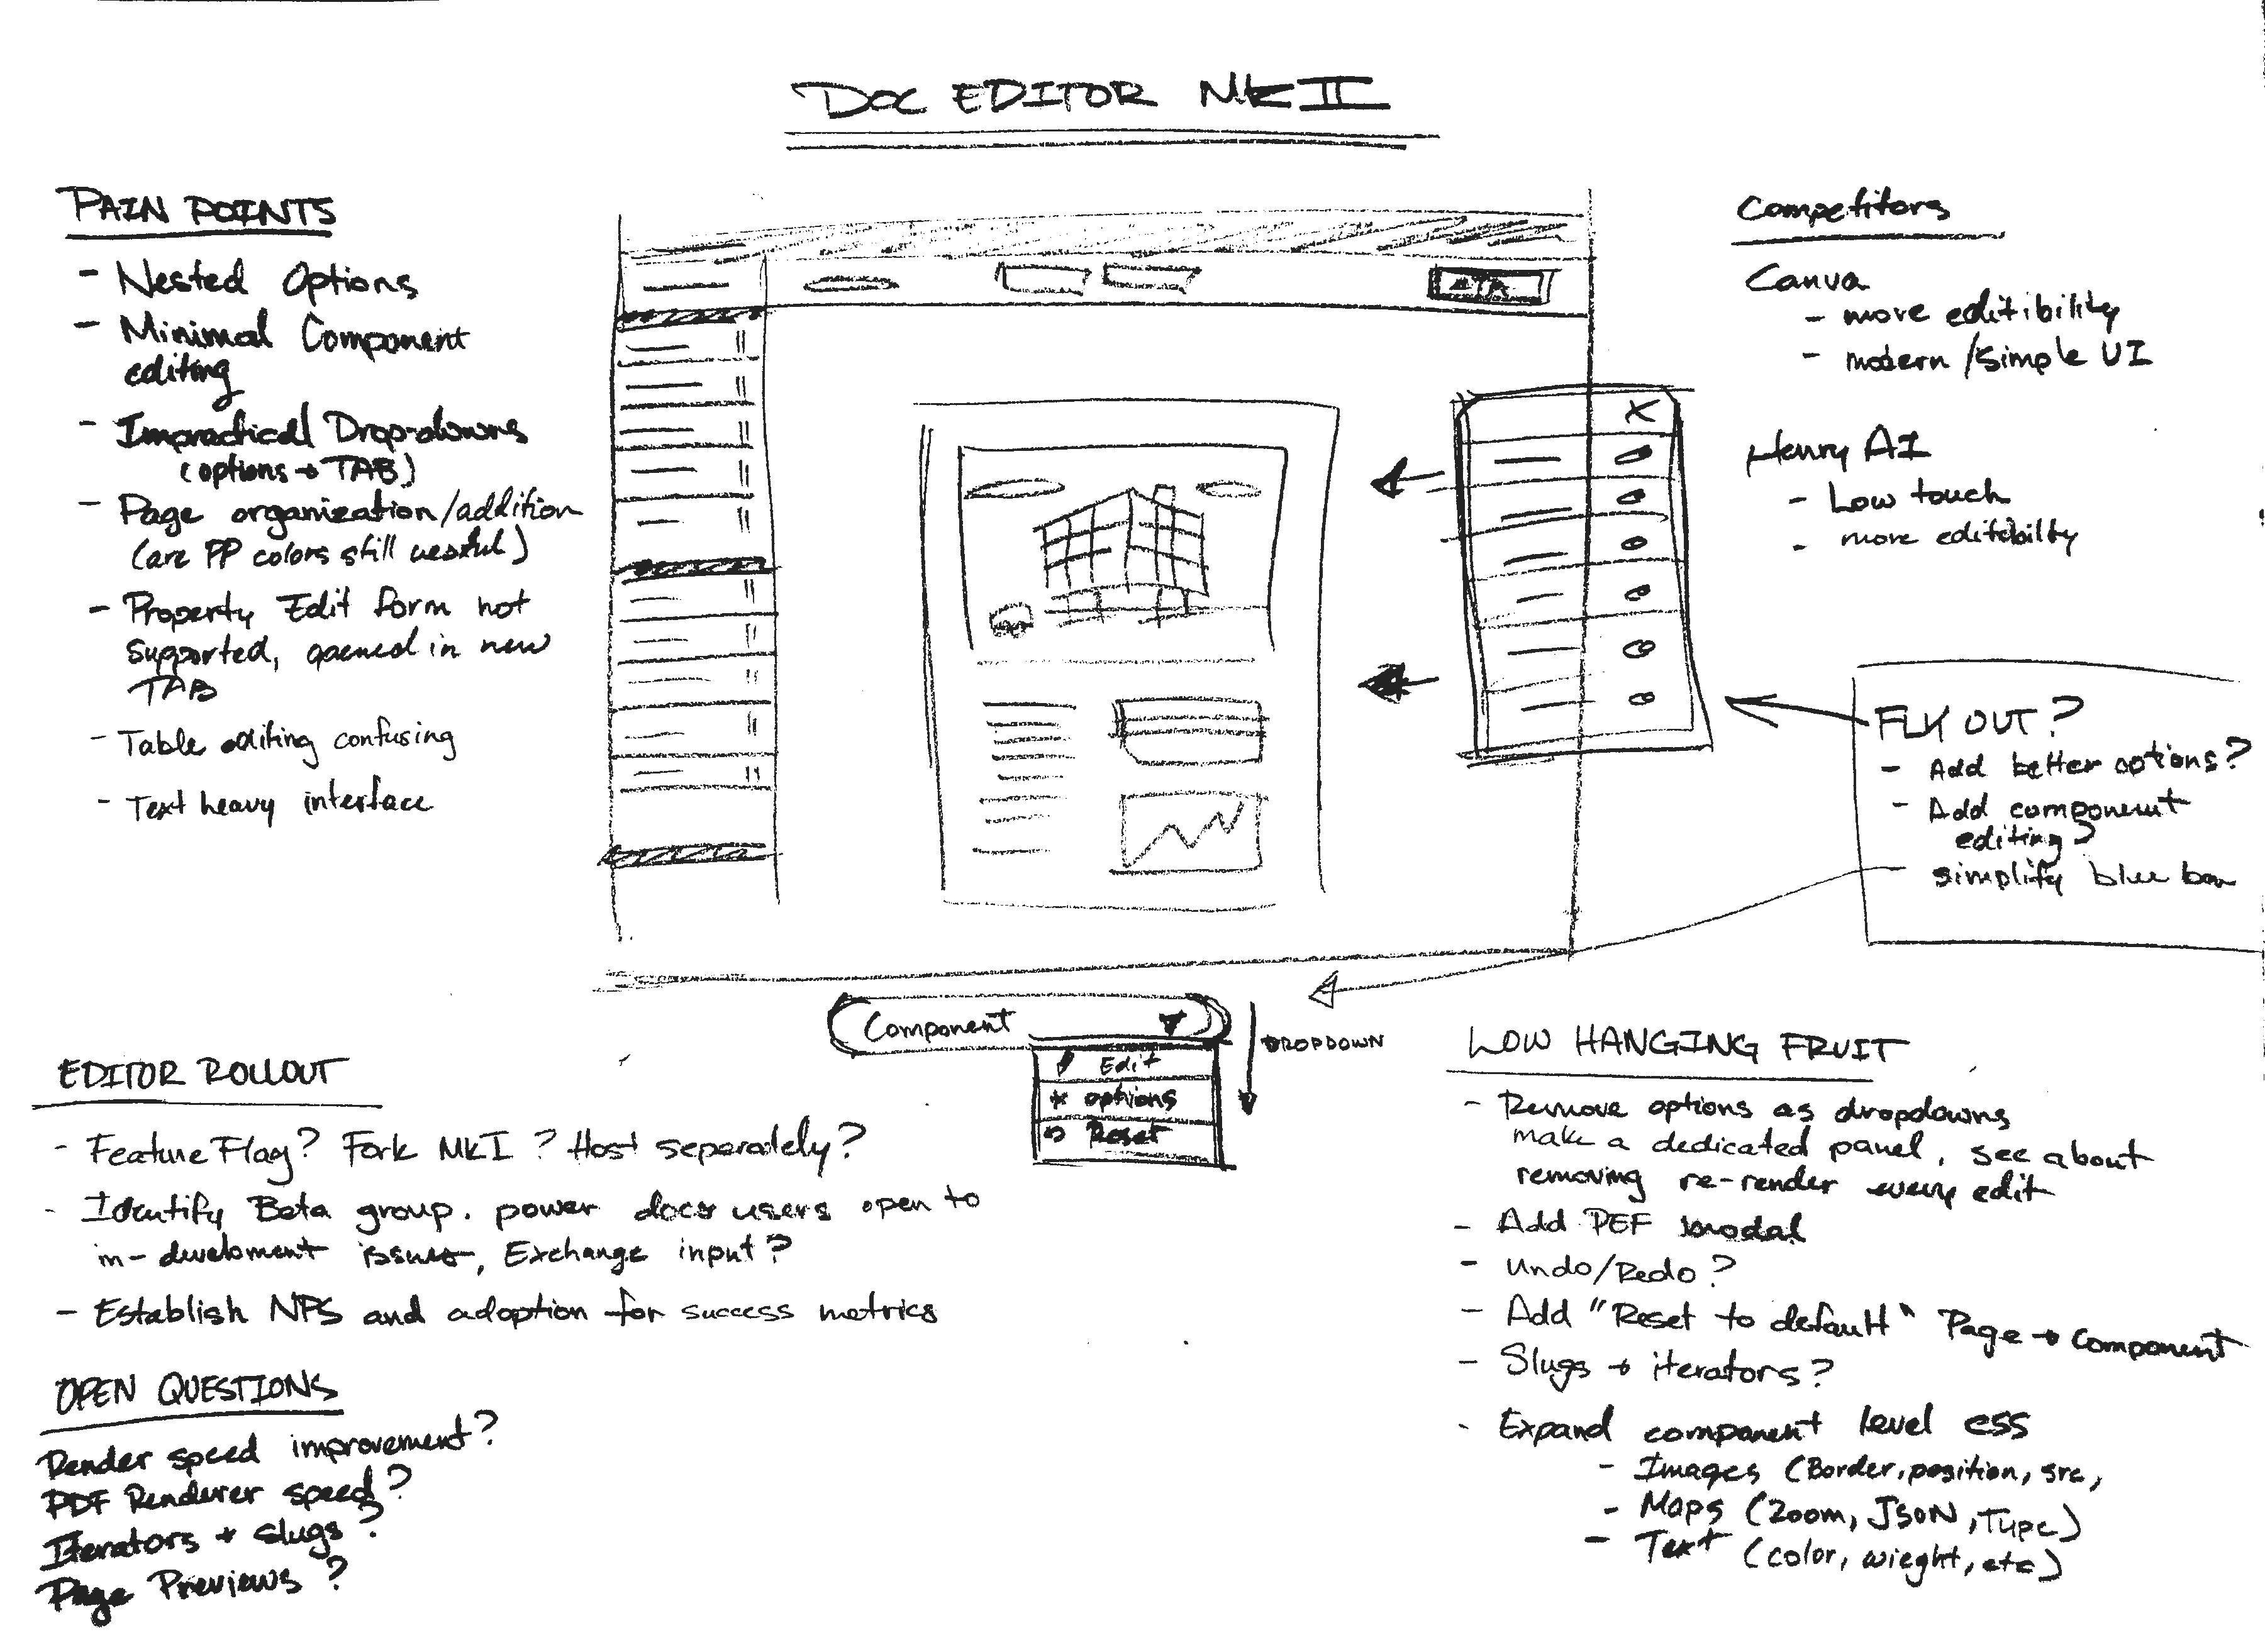 DOC EDITOR MK II
PAIN POINTS
- Nested Options
- Minimal Component
editing
- Impractical Drop-downs
(options → TAB)
- Page organization/addition
(are PP colors still useful)
- Property Edit form not
supported, opened in new
TAB
- Table editing confusing
- Text heavy interface
Competitors
Canva
- more editibility
- modern/simple UI
Henry AI
- Low touch
- more editibilty
CTA
X
FLY OUT?
- Add better options?
- Add component
editing?
- simplify blue bar
Component
Edit
options
Reset
DROPDOWN
EDITOR ROLLOUT
- Feature Flag? Fork MKI? Host seperately?
- Identify Beta group. power docs users open to
in-develoment issues, Exchange input?
- Establish NPS and adoption for success metrics
OPEN QUESTIONS
Render speed improvement?
PDF Renderer speed?
Iterators + slugs?
Page Previews?
LOW HANGING FRUIT
- Remove options as dropdowns
make a dedicated panel, see about
removing re-render every edit
- Add PEF modal
- Undo/Redo?
- Add "Reset to default" Page → Component
- Slugs + iterators?
- Expand component level css
- Images (Border, position, src,
- Maps (Zoom, JSON, Type)
- Text (color, wieght, etc)